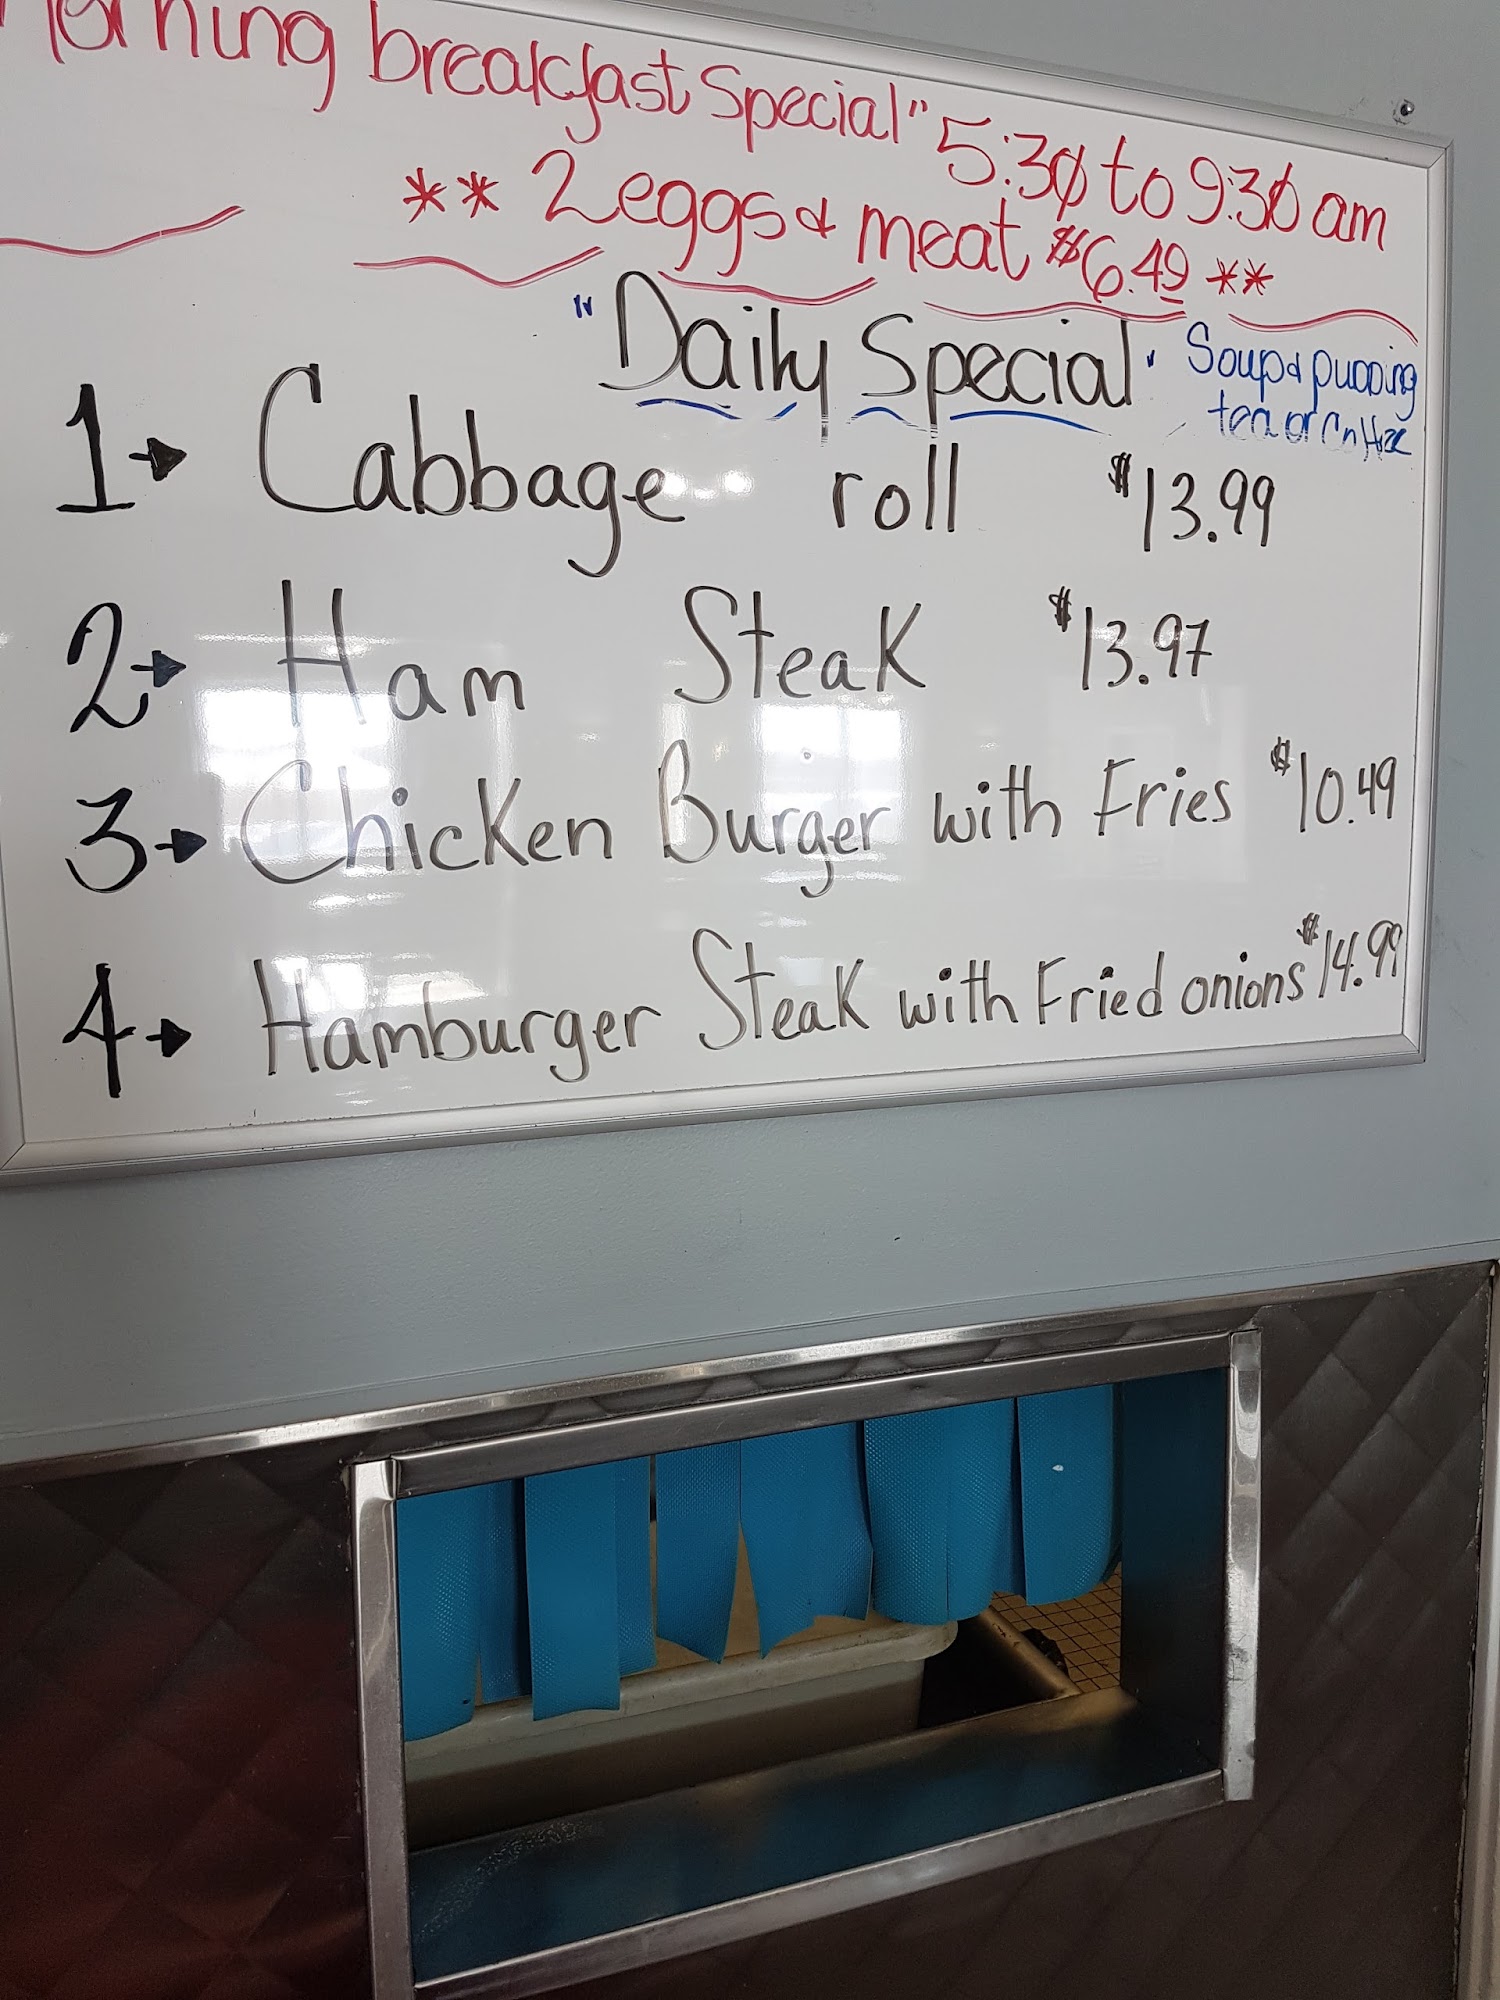 morning breakfast Special" 5:30 to 9:30 am
** 2 eggs & meat $6.49 **
"Daily Special" Soup & pudding
tea or
1→ Cabbage roll $13.99
2→ Ham Steak $13.97
3→ Chicken Burger with Fries $10.49
4→ Hamburger Steak with Fried onions $14.99